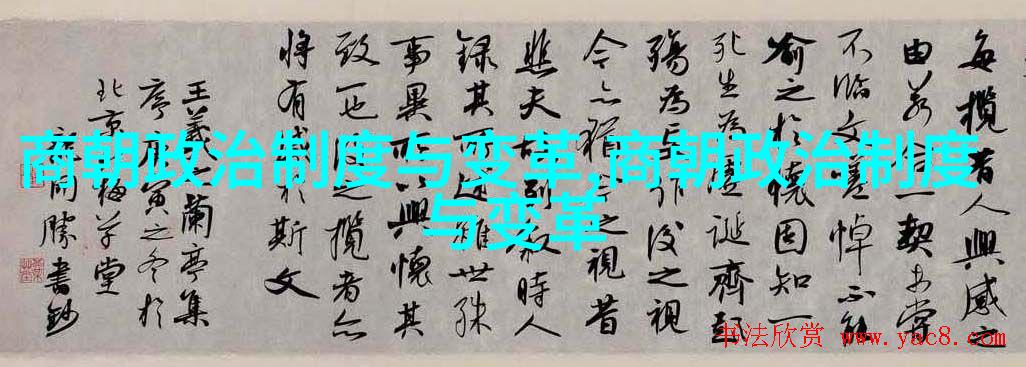 商朝政治制度与变革,商朝政治制度
与变革
每攬昔人興感之
由若合一契未嘗
不臨文嗟悼不能
喻之於懷固知一
死生為虛誕齊彭
殤為妄作後之視
今亦猶今之視昔
悲夫故列叙時人
録其所述雖世殊
事異所以興懷其
致一也後之攬者亦
將有感於斯文
王羲之蘭亭集
序庚寅之冬於
北京草堂
勝書鈔
书法欣赏 www.yac8.com